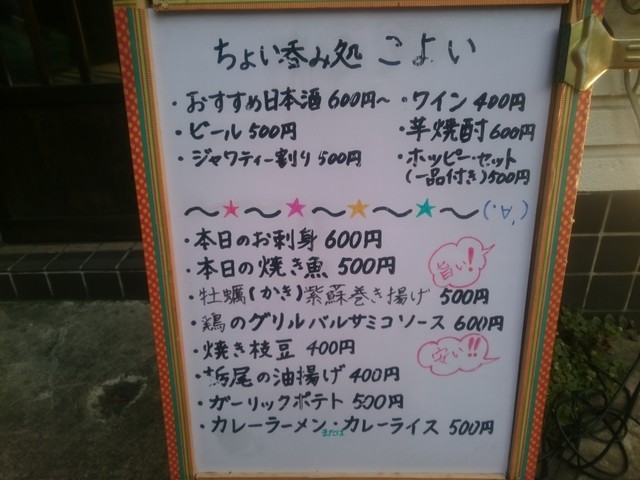 ちょい呑み処 こよい
・おすすめ日本酒 600円〜
・ビール 500円
・ジャワティー割り 500円
・ワイン 400円
・芋焼酎 600円
・ホッピー・セット
(一品付き) 500円
〜★〜★〜★〜★〜 (´∀`)
・本日のお刺身 600円
・本日の焼き魚 500円
旨い!
・牡蠣(かき)紫蘇巻き揚げ 500円
・鶏のグリルバルサミコソース 600円
・焼き枝豆 400円
安い!!
・栃尾の油揚げ 400円
・ガーリックポテト 500円
・カレーラーメン・カレーライス 500円
または